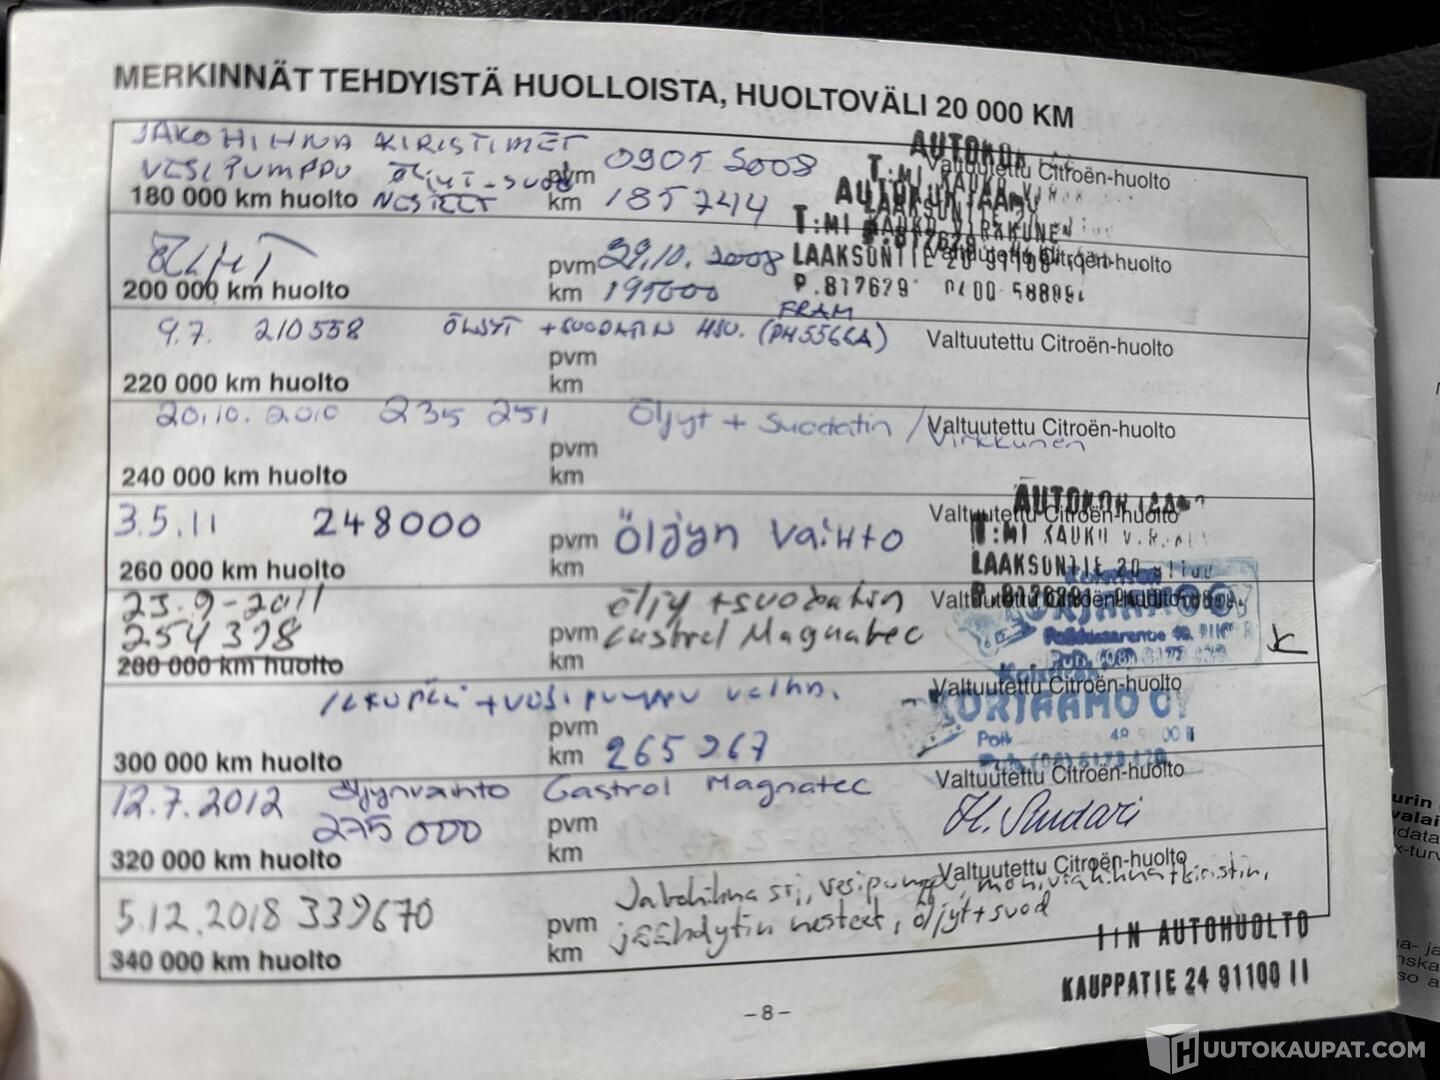 MERKINNÄT TEHDYISTÄ HUOLLOISTA, HUOLTOVÄLI 20 000 KM
JAKOHIHNA KIRISTIMET
VESIPUMPPU ÖLJYT-SUOD
NESTEET
180 000 km huolto
pvm 0905 2008
km 185744
AUTOKOR
T:MI RAUKO
Valtuutettu Citroën-huolto
ÖLJYT
200 000 km huolto
pvm 29.10.2008
km 195000
AUTOKORJAAMO
T:MI RAUKO VIRKKUNEN
LAAKSONTIE 20 91100 II
P.817629 0400-588991
Valtuutettu Citroën-huolto
FRAM
9.7. 210558 ÖLJYT + SUODATIN HSU. (PH5566A)
Valtuutettu Citroën-huolto
pvm
220 000 km huolto
km
20.10.2010 235 251 Öljyt + Suodatin / Virkkunen
Valtuutettu Citroën-huolto
pvm
240 000 km huolto
km
3.5.11 248000
pvm Öljyn vaihto
260 000 km huolto
km
AUTOKOR
Valtuutettu Citroën-huolto
T:MI RAUKO
LAAKSONTIE 20
23.9-2011 öljy + suodatin
254398
pvm Castrol Magnatec
280 000 km huolto
km
Valtuutettu Citroën-huolto
KORJAAMO OY
+ vesipumppu vaihd.
Valtuutettu Citroën-huolto
KORJAAMO OY
pvm
300 000 km huolto
km 265267
12.7.2012 öljynvaihto Castrol Magnatec
275000
Valtuutettu Citroën-huolto
pvm
320 000 km huolto
km
Valtuutettu Citroën-huolto
5.12.2018 339670
pvm
340 000 km huolto
km
Jakohihna srj, vesipumppu, moniurahihna+kiristin,
jäähdytin nesteet, öljyt+suod
I:N AUTOHUOLTO
KAUPPATIE 24 91100 II
-8-
HUUTOKAUPAT.COM